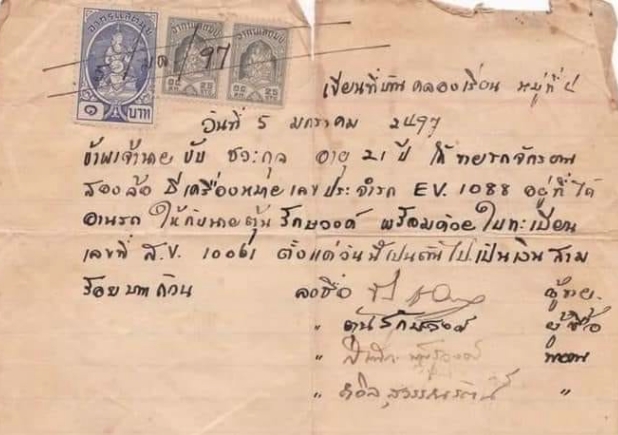 อากรแสตมป์ อากรแสตมป์ อากรแสตมป์
5 ม.ค. 97
๑ บาท 25 สต. 25 สต.
เขียนที่บ้านคลองเรียน หมู่ที่ ๔
วันที่ 5 มกราคม 2497
ข้าพเจ้านาย ขับ ชวะกุล อายุ 21 ปี ได้ขายรถจักรยาน
สองล้อ มีเครื่องหมายเลขประจำรถ EV. 1088 อยู่ที่ใต้
อานรถ ให้กับนายตุ้น รักษวงค์ พร้อมด้วยใบทะเบียน
เลขที่ ส.ข. 10061 ตั้งแต่วันนี้เป็นต้นไป เป็นเงินสาม
ร้อยบาทถ้วน ลงชื่อ ผู้ขาย.
" ตุ้น รักษวงค์ ผู้ซื้อ
" พยาน
" ถวิล สุวรรณรัตน์ "